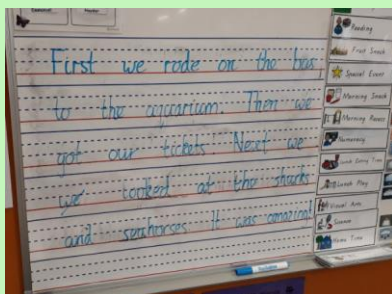 First we rode on the bus,
to the aquarium. Then we
got our tickets Next we
we looked at the sharks
and seahorses. It was amazing!
Reading
Fruit Snack
Special Event
Morning Snack
Morning Recess
Numeracy
Lunch Eating Time
Lunch Play
Visual Arts
Science
Home Time